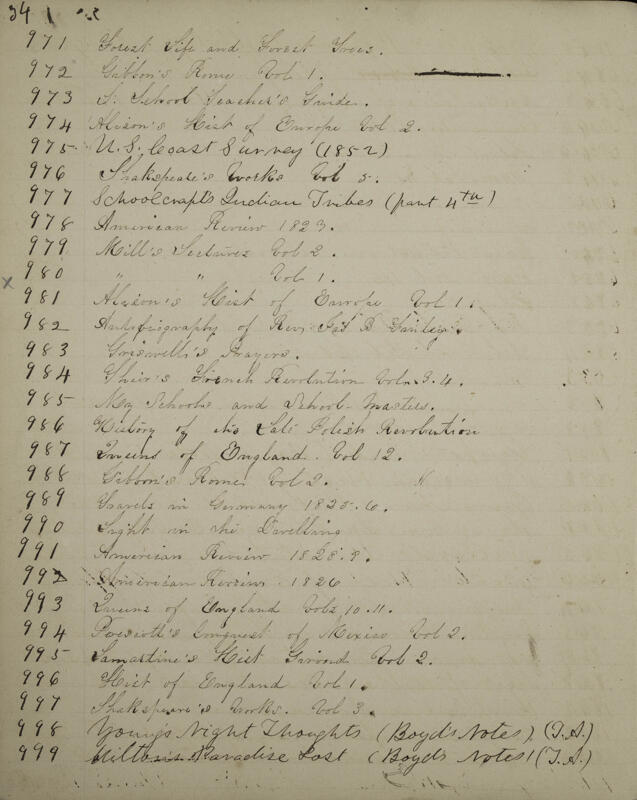 34
971 Forest Life and Forest Trees.
972 Gibbon's Rome Vol 1.
973 S. School Teacher's Guide.
974 Alison's Hist of Europe Vol 2.
975 U.S. Coast Survey (1852)
976 Shakspeare's Works Vol 5.
977 Schoolcrafts Indian Tribes (part 4th)
978 American Review 1823.
979 Mill's Lectures Vol 2.
980 " " Vol 1.
x
981 Alison's Hist of Europe Vol 1.
982 Autobiography of Rev. Jas B Finley.
983 Prayers.
984 Thier's French Revolution Vols. 3.4.
985 My Schools and School-masters.
986 History of the Late Polish Revolution
987 Queens of England. Vol 12.
988 Gibbon's Rome Vol 2.
989 Travels in Germany 1825.6.
990 Light in the Dwelling
991 American Review 1828.9.
992 American Review 1826
993 Queens of England Vols 10.11.
994 Prescott's Conquest of Mexico Vol 2.
995 Lamartine's Hist Girond Vol 2.
996 Hist of England Vol 1.
997 Shakspeare's Works. Vol 3.
998 Youngs Night Thoughts (Boyds Notes) (T.A.)
999 Miltons Paradise Lost (Boyds Notes) (T.A.)